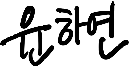 윤하연